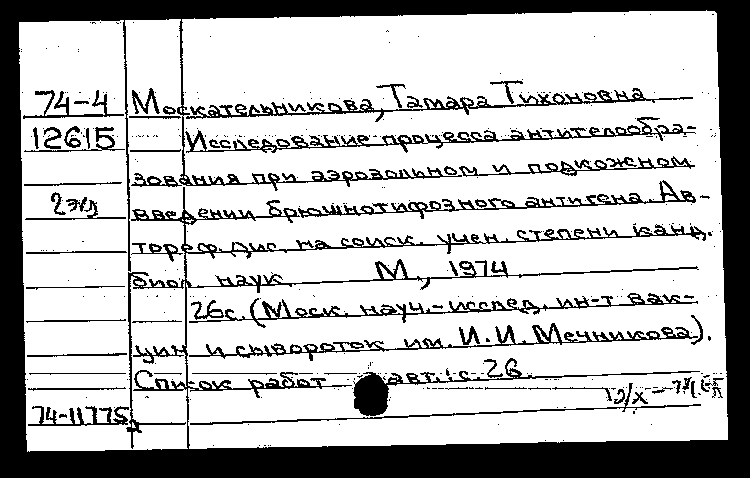 74-4 Москательникова, Тамара Тихоновна
12615 Исследование процесса антителообра-
зования при аэрозольном и подкожном
2 экз введении брюшнотифозного антигена. Ав-
тореф. дис. на соиск. учен. степени канд.
биол. наук. М., 1974.
26с. (Моск. науч.-исслед. ин-т вак-
цин и сывороток им. И.И. Мечникова).
Список работ авт.: с. 26.
12/X-
74-11775